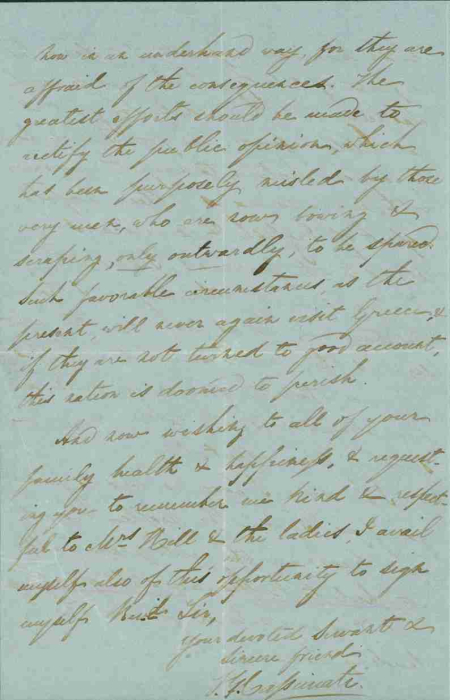 now in an underhand way, for they are
affraid of the consequences. The
greatest efforts should be made to
rectify the public opinion, which
has been purposely misled by those
very men, who are now bowing &
scraping, only outwardly, to be spared.
Such favorable circumstances as the
present, will never again visit Greece, &
if they are not turned to good account,
this nation is doomed to perish.
And now wishing to all of your
family health & happiness, & request-
ing you to remember me kind & respect-
ful to Mrs Hill & the ladies I avail
myself also of this opportunity to sign
myself Revd Sir,
your devoted Servant &
Sincere friend